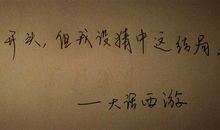 开头，但我没猜中这结局.
—大话西游